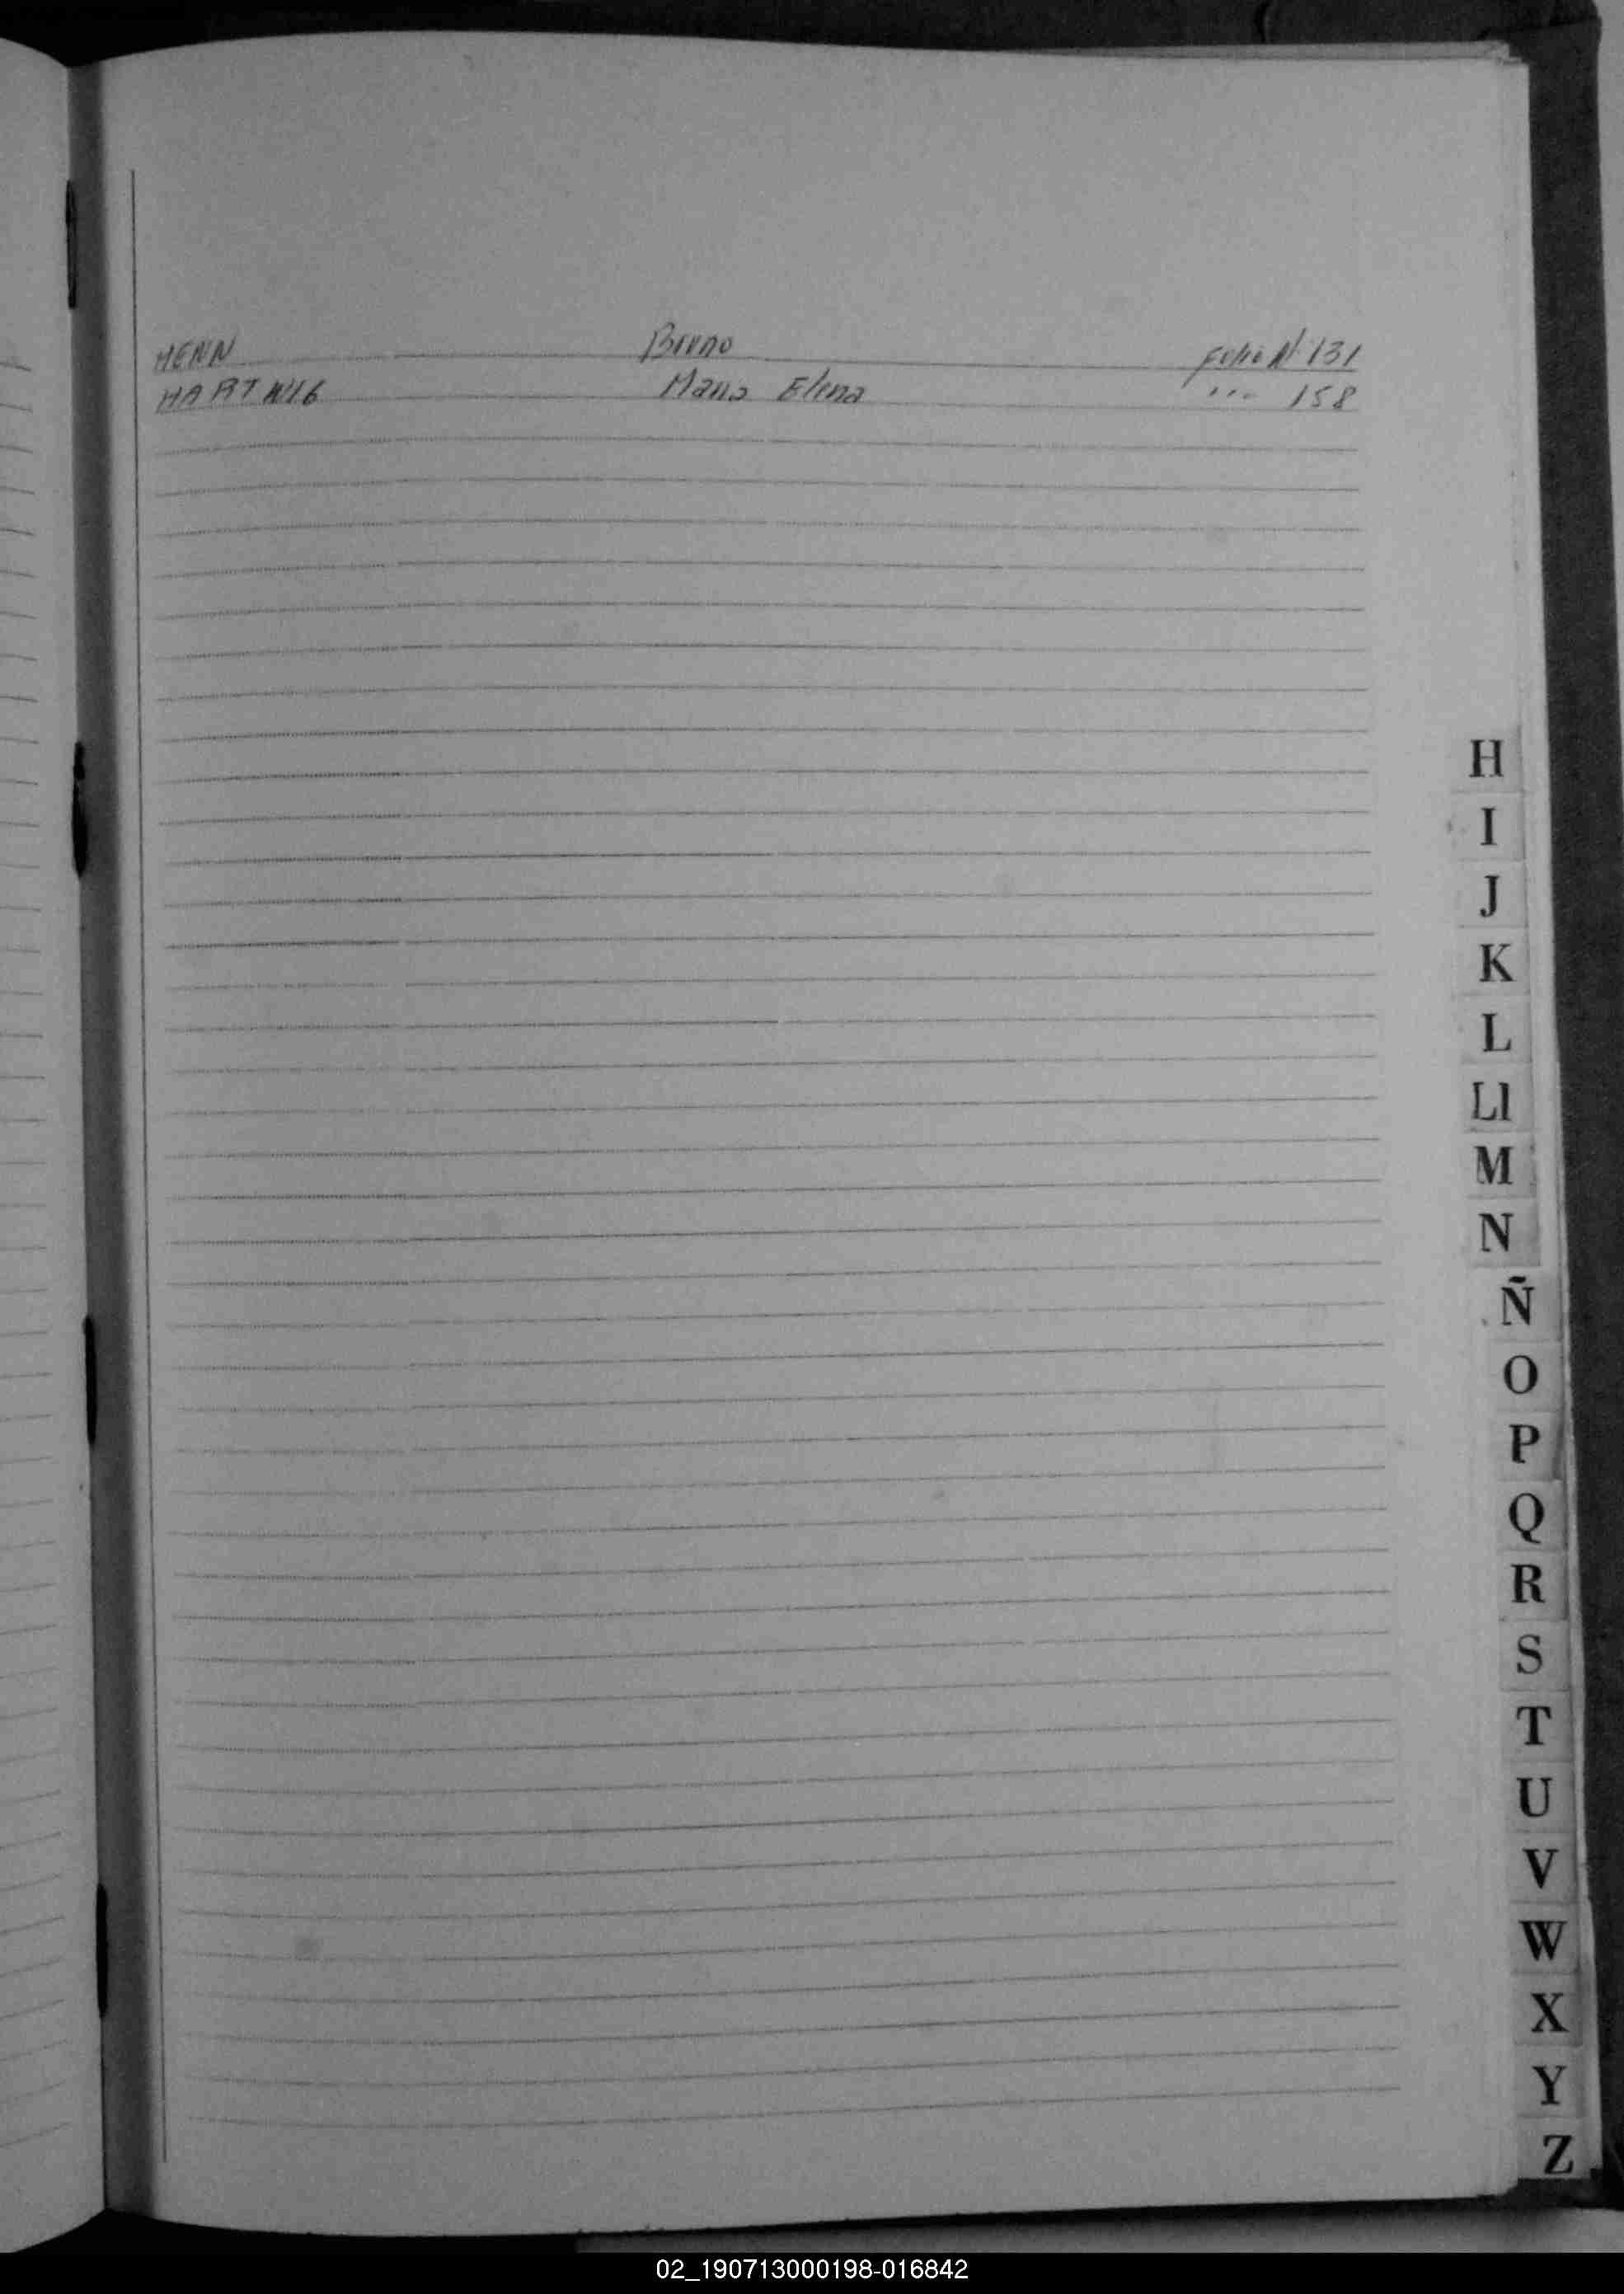 HENN Bruno Folio Nº 131
HARTWIG Maria Elena ' ' ' 158
H
I
J
K
L
Ll
M
N
Ñ
O
P
Q
R
S
T
U
V
W
X
Y
Z
02_190713000198-016842